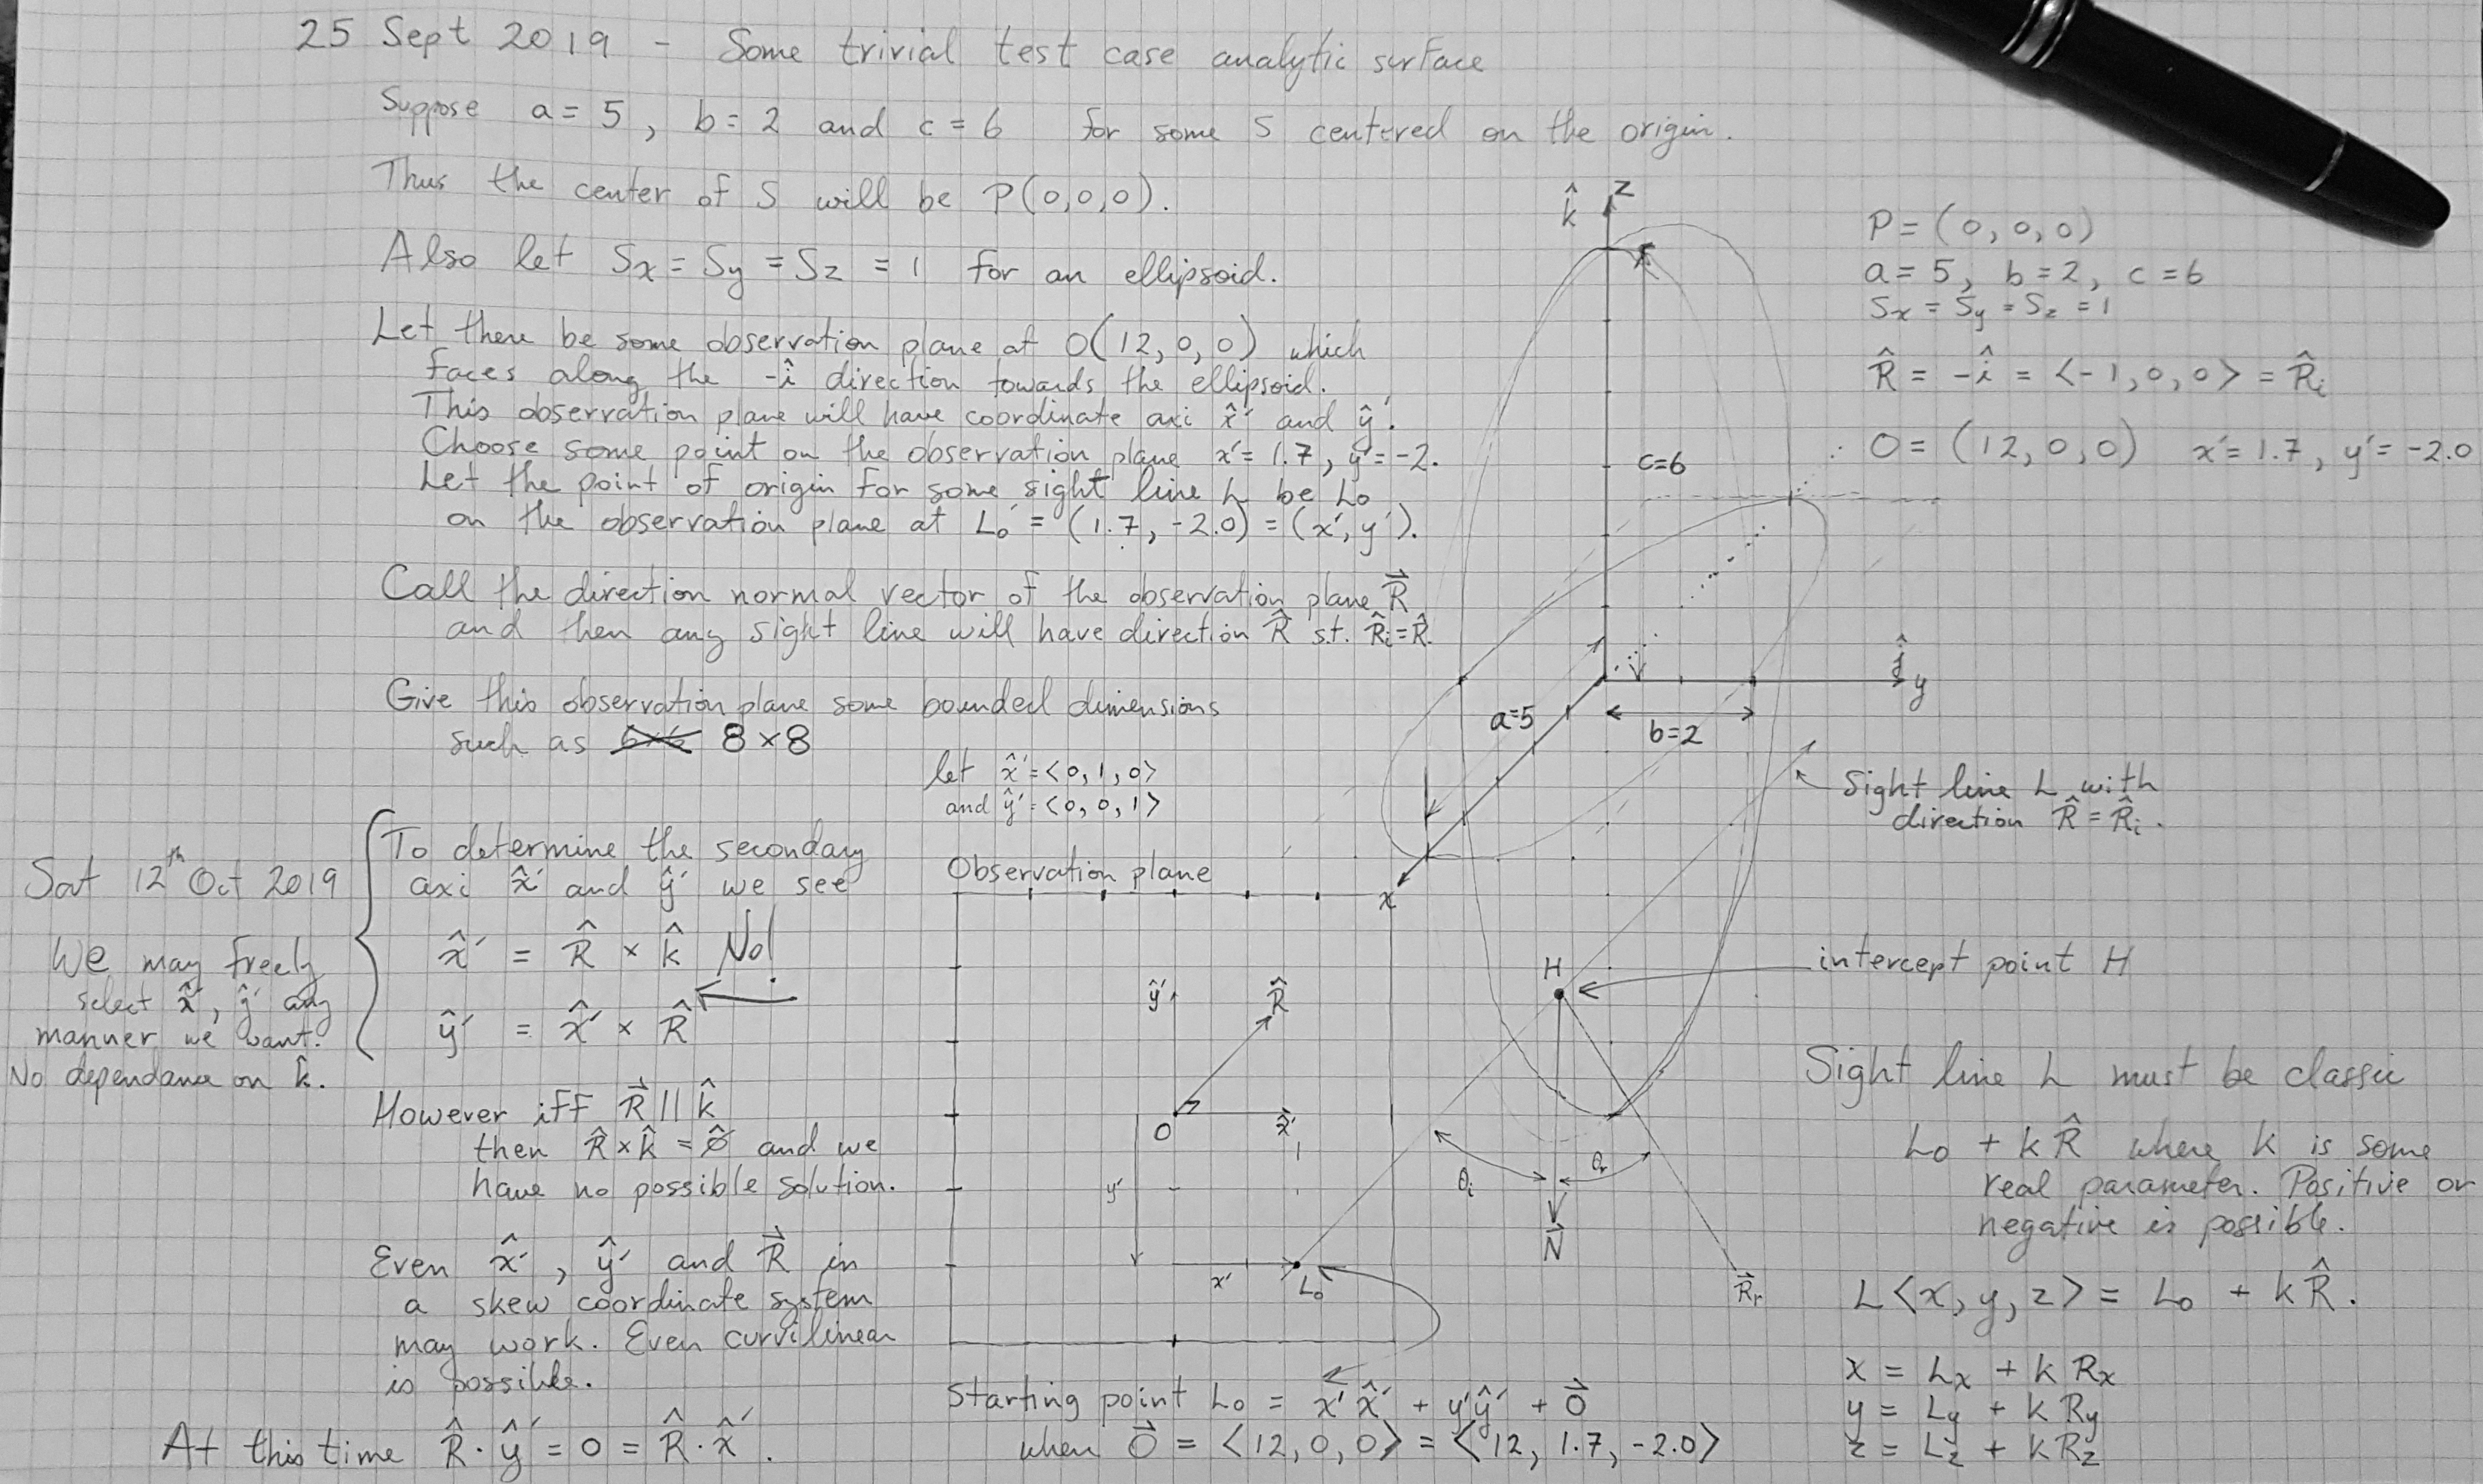 25 Sept 2019 - Some trivial test case analytic surface
Suppose a = 5, b = 2 and c = 6 for some S centered on the origin.
Thus the center of S will be P(0,0,0).
Also let Sx = Sy = Sz = 1 for an ellipsoid.
Let there be some observation plane at O(12,0,0) which
faces along the -î direction towards the ellipsoid.
This observation plane will have coordinate axi x̂′ and ŷ′.
Choose some point on the observation plane x′= 1.7, y′= -2.
Let the point of origin for some sight line L be L₀
on the observation plane at L₀′ = (1.7, -2.0) = (x′, y′).
Call the direction normal vector of the observation plane R⃗
and then any sight line will have direction R̂ s.t. R̂ᵢ=R̂.
Give this observation plane some bounded dimensions
such as 8×8
let x̂′=<0,1,0>
and ŷ′=<0,0,1>
Sat 12th Oct 2019
We may freely
select x̂′, ŷ′ any
manner we want.
No dependance on k̂.
To determine the secondary
axi x̂′ and ŷ′ we see
x̂′ = R̂ × k̂ No!
ŷ′ = x̂′ × R̂
However iff R⃗ || k̂
then R̂×k̂ = 0̸̂ and we
have no possible solution.
Even x̂′, ŷ′ and R⃗ in
a skew coordinate system
may work. Even curvilinear
is possible.
At this time R̂·ŷ′ = 0 = R̂·x̂′.
Observation plane
ŷ′
R̂
O
x̂′
y′
x′
L₀
Starting point L₀ = x′x̂′ + y′ŷ′ + O⃗
when O⃗ = <12,0,0> = <12, 1.7, -2.0>
k̂
z
c=6
a=5
b=2
ĵ
y
x
H
θᵢ
θᵣ
N⃗
R⃗ᵣ
P = (0,0,0)
a = 5, b = 2, c = 6
Sx = Sy = Sz = 1
R̂ = -î = <-1,0,0> = R̂ᵢ
∴ O = (12,0,0) x′=1.7, y′= -2.0
Sight line L with
direction R̂ = R̂ᵢ.
intercept point H
Sight line L must be classic
L₀ + k R̂ where k is some
real parameter. Positive or
negative is possible.
L<x,y,z> = L₀ + k R̂.
x = Lx + k Rx
y = Ly + k Ry
z = Lz + k Rz